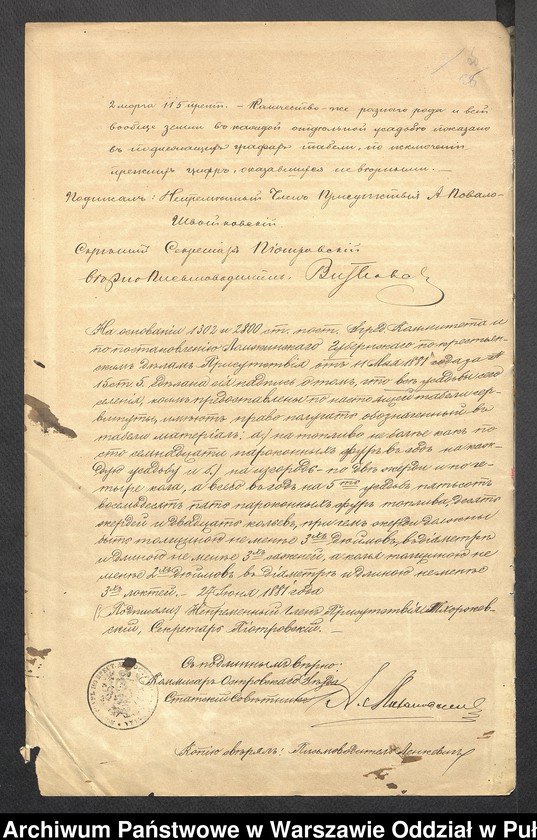 2 морга 115 прент. – Количество-же разного рода и всей
вообще земли въ каждой отдѣльной усадьбѣ показано
въ подлежащихъ графахъ табели, по исключеніи
прежнихъ цифръ, оказавшихся невѣрными. —
Подписали: Непремѣнный Членъ Присутствія А Повало-
Швыйковскій
Скрѣпилъ Секретарь Піотровскій
Вѣрно: Письмоводитель
На основаніи 1302 и 2800 ст. пост. Учред. Коммитета и
по постановленію Ломжинскаго Губернскаго по крестьян-
скимъ дѣламъ Присутствія отъ 11 Мая 1881 года за №
15 ст. 5. сдѣлана сія надпись о томъ, что всѣ усадьбы сего
селенія, коимъ предоставлены по настоящей табели сер-
витуты, имѣютъ право получать обозначенный въ
табели матеріалъ: а) на топливо не болѣе какъ по
сто семнадцати пароконныхъ фуръ въ годъ на каж-
дую усадьбу и б) на изгородь по двѣ жерди и по че-
тыре кола, а всего въ годъ на 5 усадьбъ пятьсотъ
восемьдесятъ пять пароконныхъ фуръ топлива, десять
жердей и двадцать кольевъ, при чемъ жерди должны
быть толщиною не менѣе 3 дюймовъ въ діаметрѣ
и длиною не менѣе 3 саженей, а колья толщиною не
менѣе 2 дюймовъ въ діаметрѣ и длиною не менѣе
3 локтей. – 27 Іюня 1881 года
(Подписали) Непремѣнный Членъ Присутствія
Секретарь Піотровскій. —
Съ подлиннымъ вѣрно:
Коммисаръ Островскаго Уѣзда
Статскій Совѣтникъ
Копію свѣрялъ: Письмоводитель
Archiwum Państwowe w Warszawie Oddział w Puł